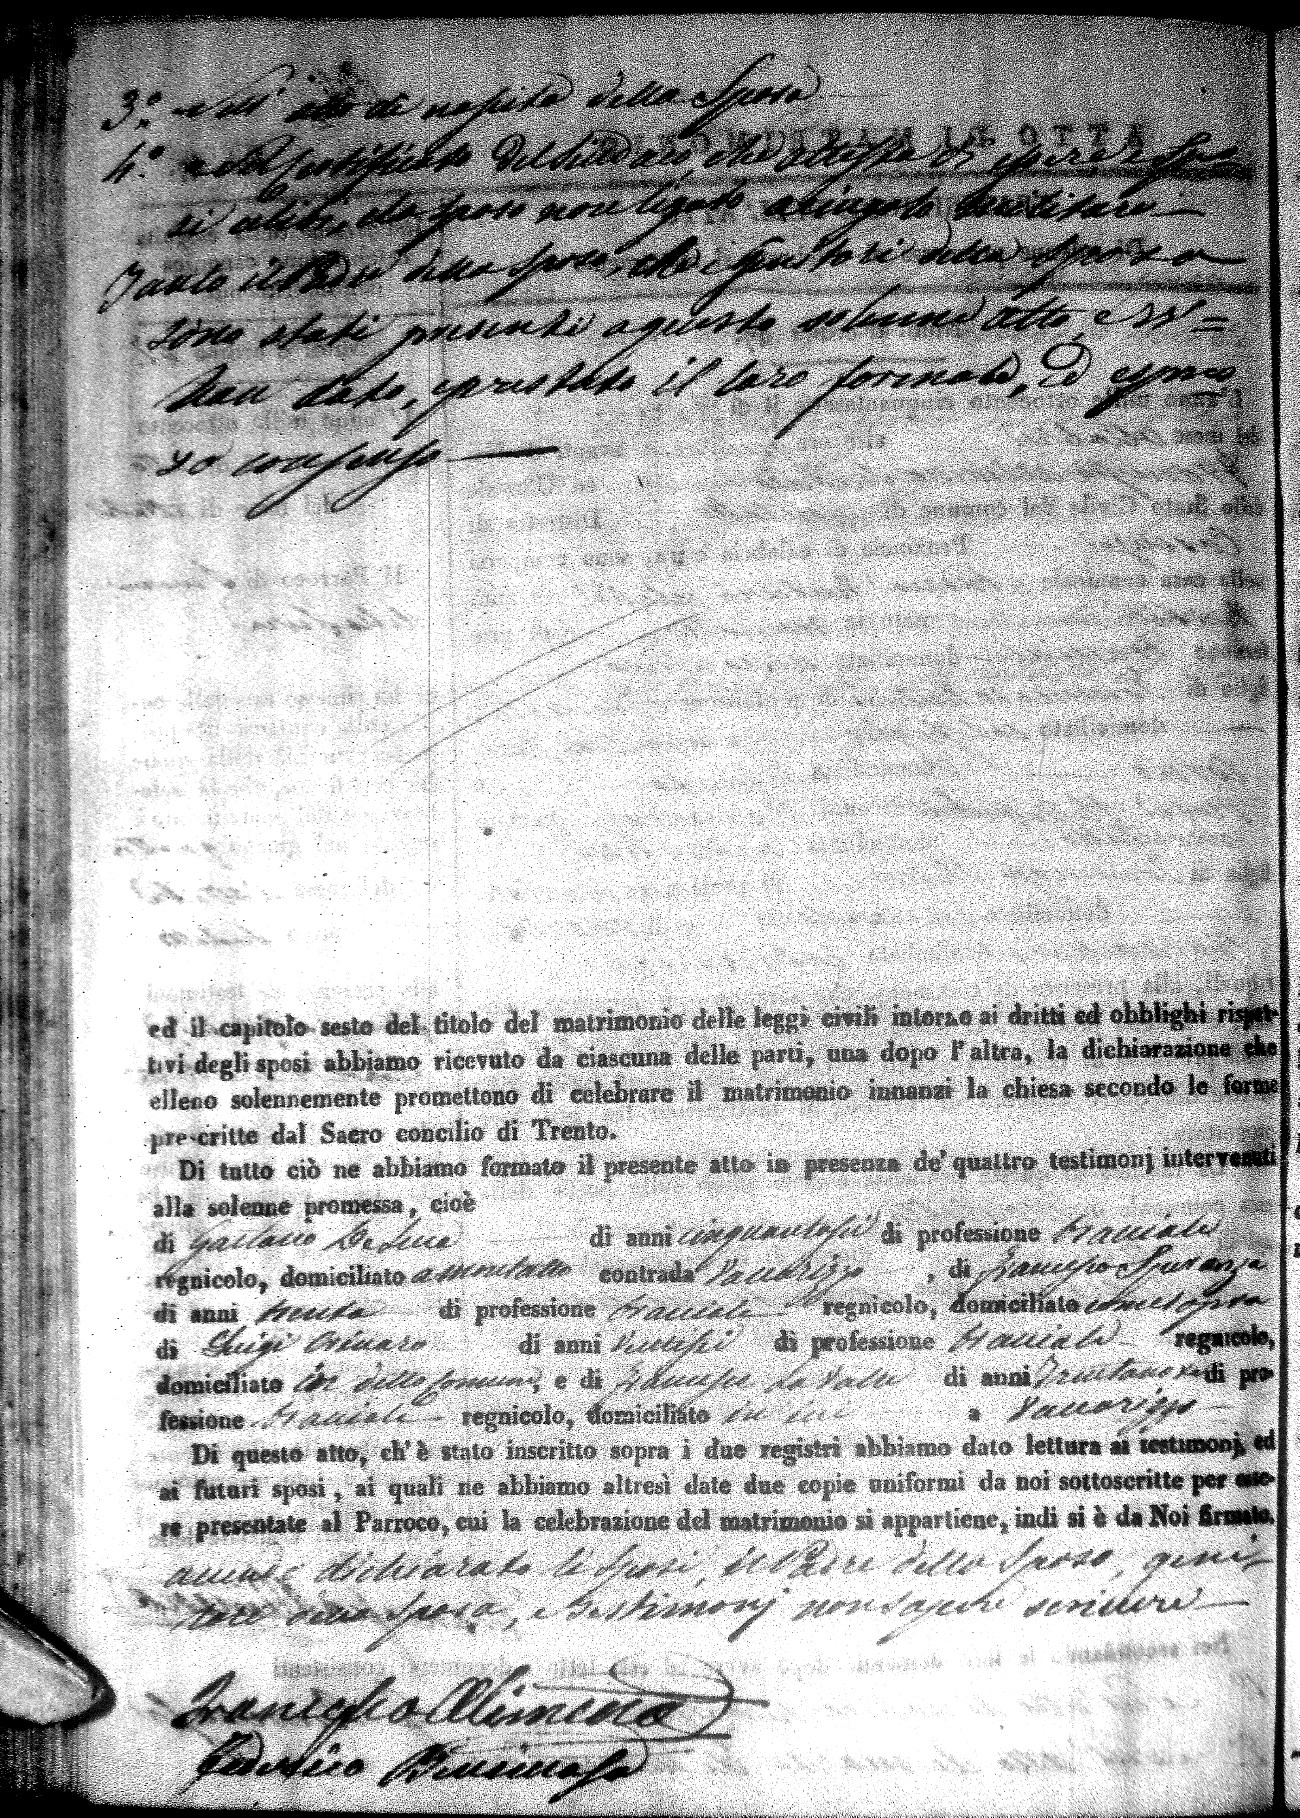 3.° Nell' atto di nascita della Sposa
4.° nel certificato del Sindaco, che attesta di essere i Spo-
si celibi, e lo sposo non ligato a vincolo militare —
Tanto il Padre dello sposo, che i genitori della sposa
sono stati presenti a questo solenne atto, e vi =
han dato, e prestato il loro formale, ed espres
so consenso —
ed il capitolo sesto del titolo del matrimonio delle leggi civili intorno ai dritti ed obblighi rispet-
tivi degli sposi abbiamo ricevuto da ciascuna delle parti, una dopo l'altra, la dichiarazione che
elleno solennemente promettono di celebrare il matrimonio innanzi la chiesa secondo le forme
prescritte dal Sacro concilio di Trento.
Di tutto ciò ne abbiamo formato il presente atto in presenza de' quattro testimonj intervenuti
alla solenne promessa, cioè
di Gaetano De Luca di anni cinquantasei di professione braciale
regnicolo, domiciliato contrada Vavarizzo, di Francesco Speranza
di anni trenta di professione braciale regnicolo, domiciliato come sopra
di Luigi di anni ventisei di professione braciale regnicolo,
domiciliato in detto comune, e di Francesco La Valle di anni di pro-
fessione braciale regnicolo, domiciliato in a Vavarizzo
Di questo atto, ch'è stato inscritto sopra i due registri abbiamo dato lettura ai testimonj, ed
ai futuri sposi, ai quali ne abbiamo altresì date due copie uniformi da noi sottoscritte per esse-
re presentate al Parroco, cui la celebrazione del matrimonio si appartiene, indi si è da Noi firmato,
avendo dichiarato li sposi, il Padre dello sposo, geni-
tori della sposa, e testimonj non sapere scrivere —
Francesco Alimena
Federico